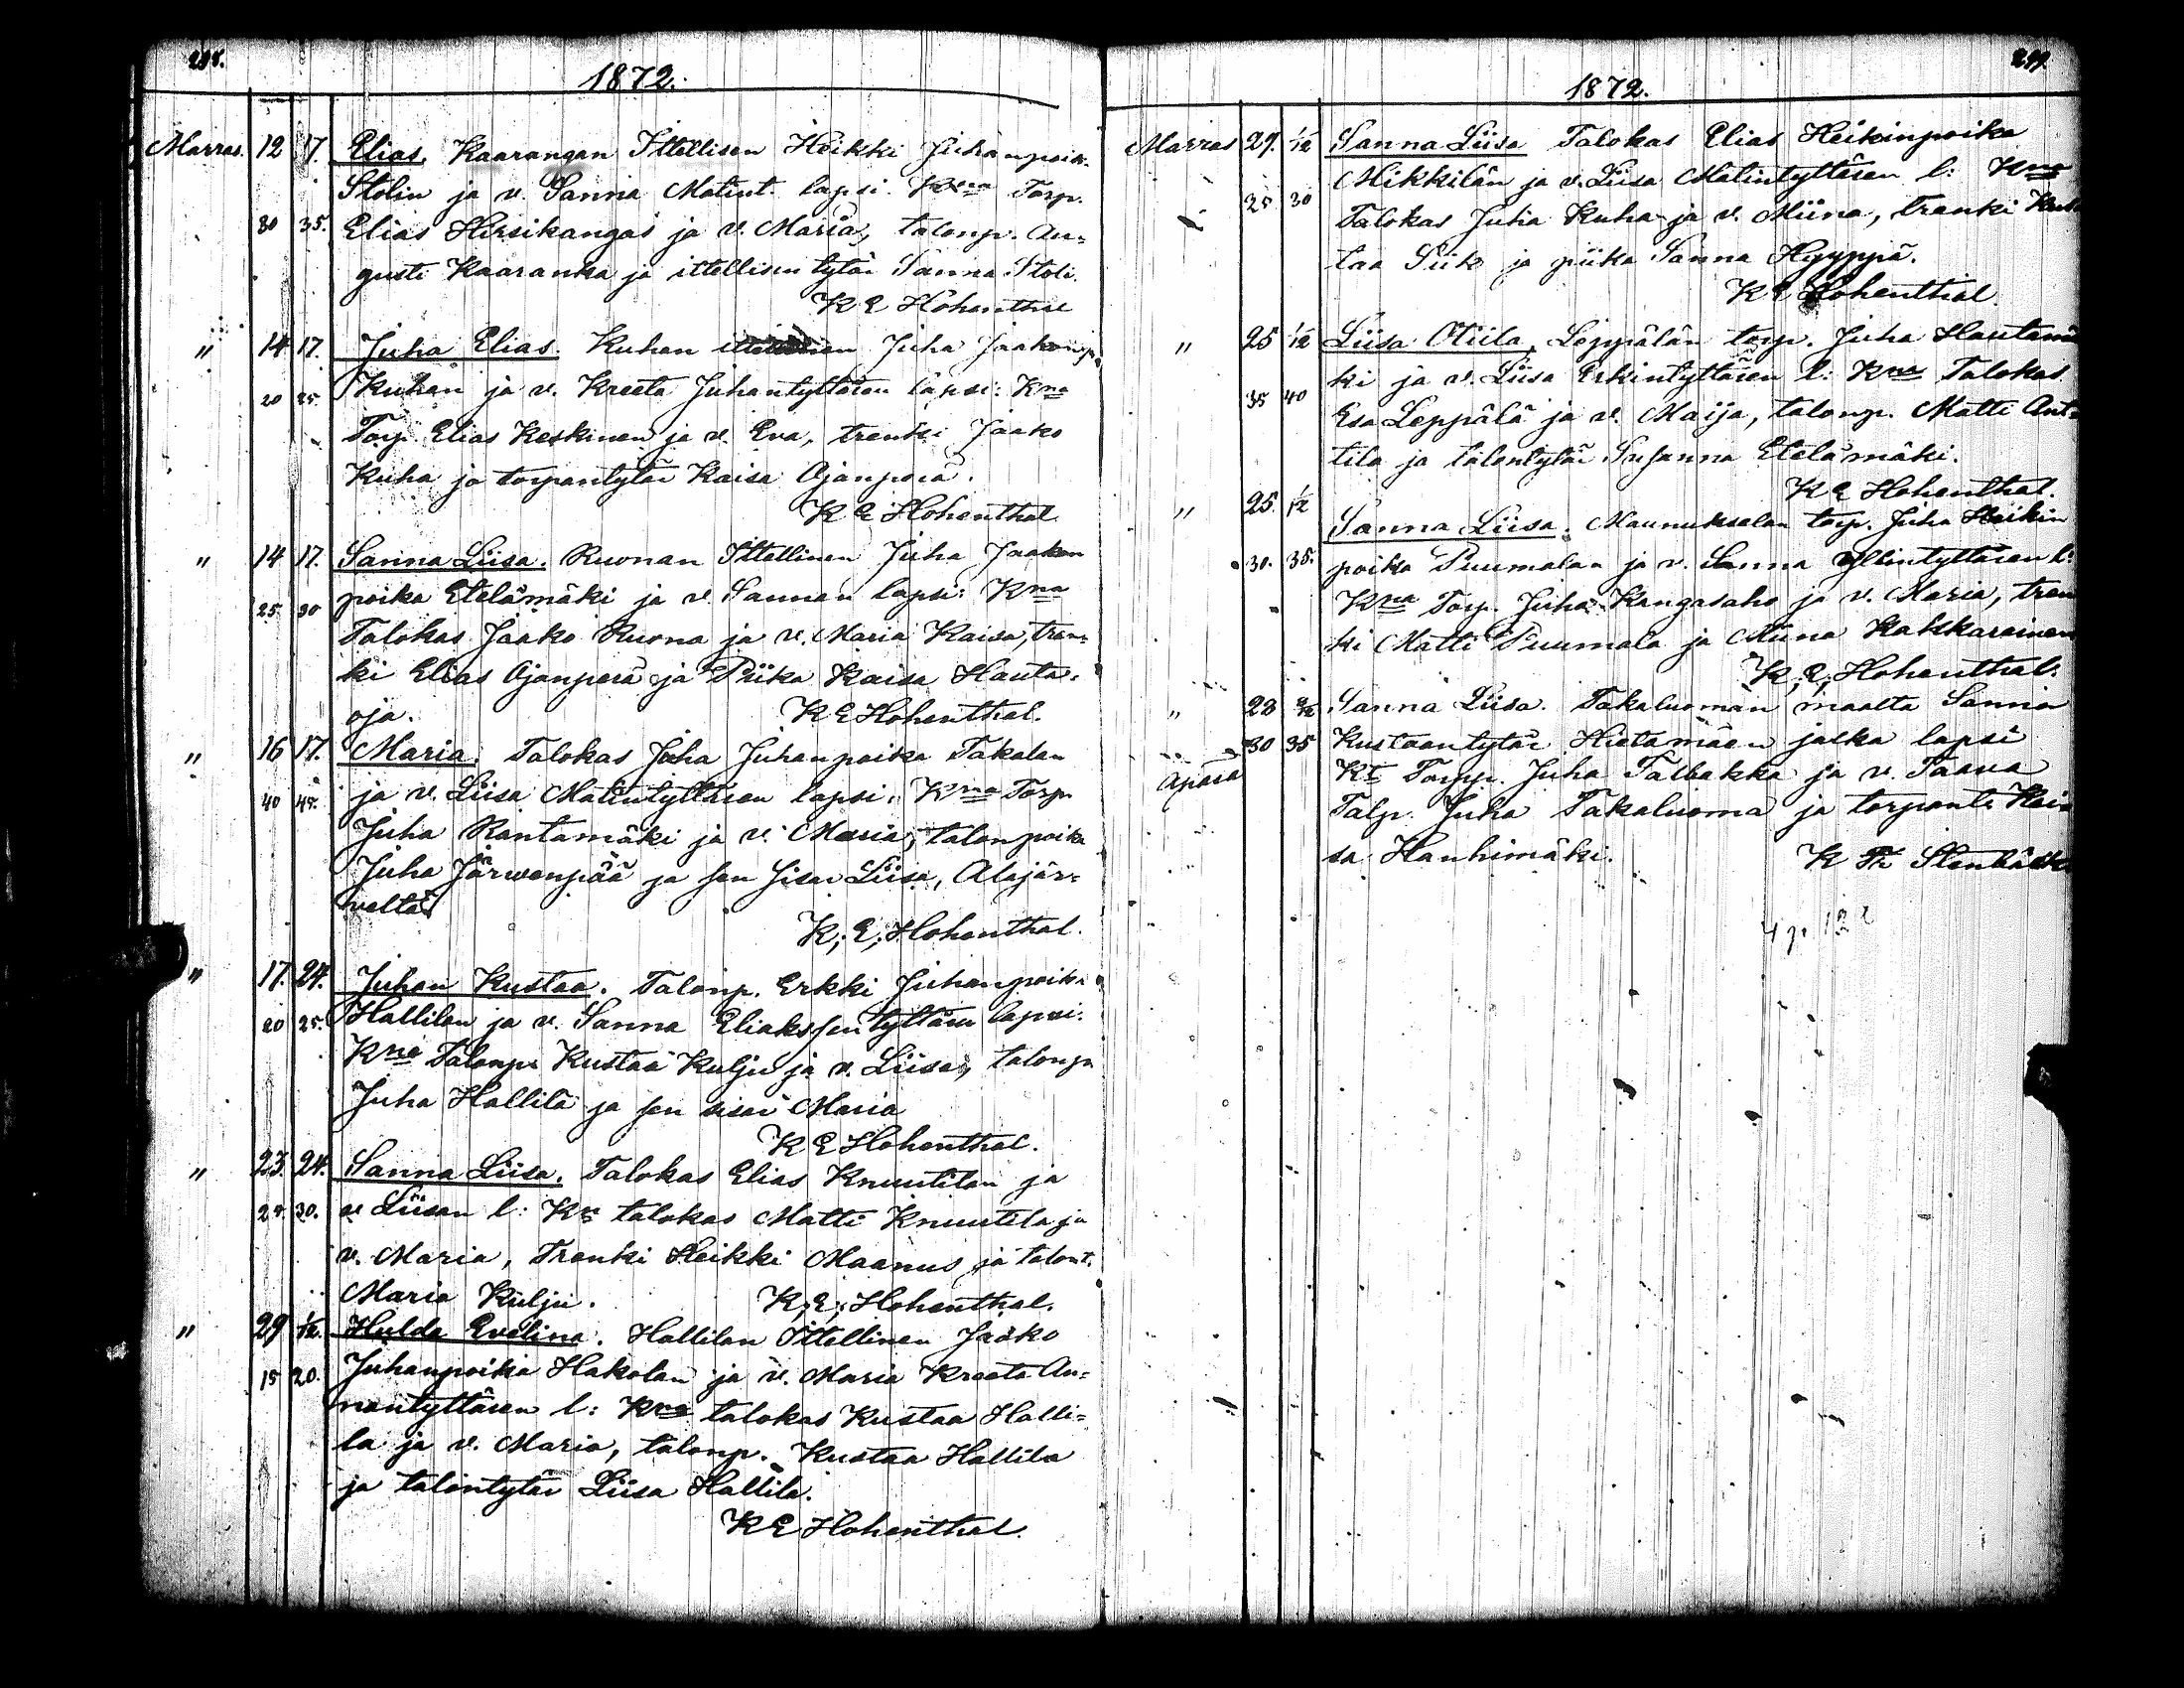 298.
1872.
Marras. 12 17. Elias. Kaarangan Ittellisen Heikki Juhanpoik.
Stolin ja v. Sanna Matint. lapsi. Kna Torp.
30 35. Elias Hirsikangas ja v. Maria, talonp. Au=
gusti Kaaranka ja ittellisen tytär Sanna Stoli.
K E Hohenthal
" 14 17. Juha Elias. Kuhan ittellinen Juha Jaakonp.
20 25. Kuhan ja v. Kreeta Juhantyttären lapsi: Kna
Torp. Elias Keskinen ja v. Eva, trenki Jaako
Kuha ja torpantytär Kaisa Ajanperä.
K E Hohenthal
" 14 17. Sanna Liisa. Ruonan Ittellinen Juha Jaakon
25. 30 poika Etelämäki ja v. Sannan lapsi: Kna
Talokas Jaako Ruona ja v. Maria Kaisa, tren=
ki Elias Ajanperä ja Piika Kaisa Hauta=
oja. K E Hohenthal.
" 16 17. Maria. Talokas Juha Juhanpoika Takalan
40 45. ja v. Liisa Matintyttären lapsi: Kna Torp.
Juha Rantamäki ja v. Maria, talonpoika
Juha Järwenpää ja sen sisar Liisa, Alajär=
veltä
K; E; Hohenthal.
" 17. 24. Juhan Kustaa. Talonp. Erkki Juhanpoika
20 25. Hallilan ja v. Sanna Eliaksentyttären lapsi.
Kna Talonp. Kustaa Kulju ja v. Liisa, talonp
Juha Hallila ja sen sisar Maria
K E Hohenthal.
" 23. 24. Sanna Liisa. Talokas Elias Knuutilan ja
25. 30. v Liisan l: Kt talokas Matti Knuutila ja
v. Maria, Trenki Heikki Maanus ja talont.
Maria Kulju. K; E; Hohenthal.
" 29 1/12. Hulda Evelina. Hallilan Ittellinen Jaako
15 20. Juhanpoika Hakolan ja v. Maria Kreeta An=
nantyttären l: Kna talokas Kustaa Halli=
la ja v. Maria, talonp. Kustaa Hallila
ja talontytär Liisa Hallila.
K E Hohenthal.
299.
1872.
Marras 29. 1/12 Sanna Liisa Talokas Elias Heikinpoika
Mikkilän ja v. Liisa Matintyttären l: Kna
25 30 Talokas Juha Kuha ja v. Miina, trenki Kus
taa Piik ja piika Sanna Hyyppä.
K E Hohenthal
" 25 1/12 Liisa Otiila, Leppälän torp. Juha Hautamä
ki ja v. Liisa Erkintyttären l: Kna Talokas
35 40 Esa Leppälä ja v. Maija, talonp. Matti Ant=
tila ja talontytär Susanna Etelämäki.
K E Hohenthal.
" 25. 1/12 Sanna Liisa. Maunukselan torp. Juha Heikin
30. 35. poika Puumalan ja v. Sanna tyttären l:
Kna Torp. Juha Kangasaho ja v. Maria, tren
ki Matti Puumala ja Miina Kakkarainen
K; E; Hohenthal.
" 28 Sanna Liisa. Takaluoman maalta Sanna
30 35 Kustaantytär Hietamäen jalka lapsi
Apärä Kt Torpp. Juha Talbakka ja v. Taava
Talp. Juha Takaluoma ja torpant. Kai
sa Hanhimäki. K Th Stenbäck